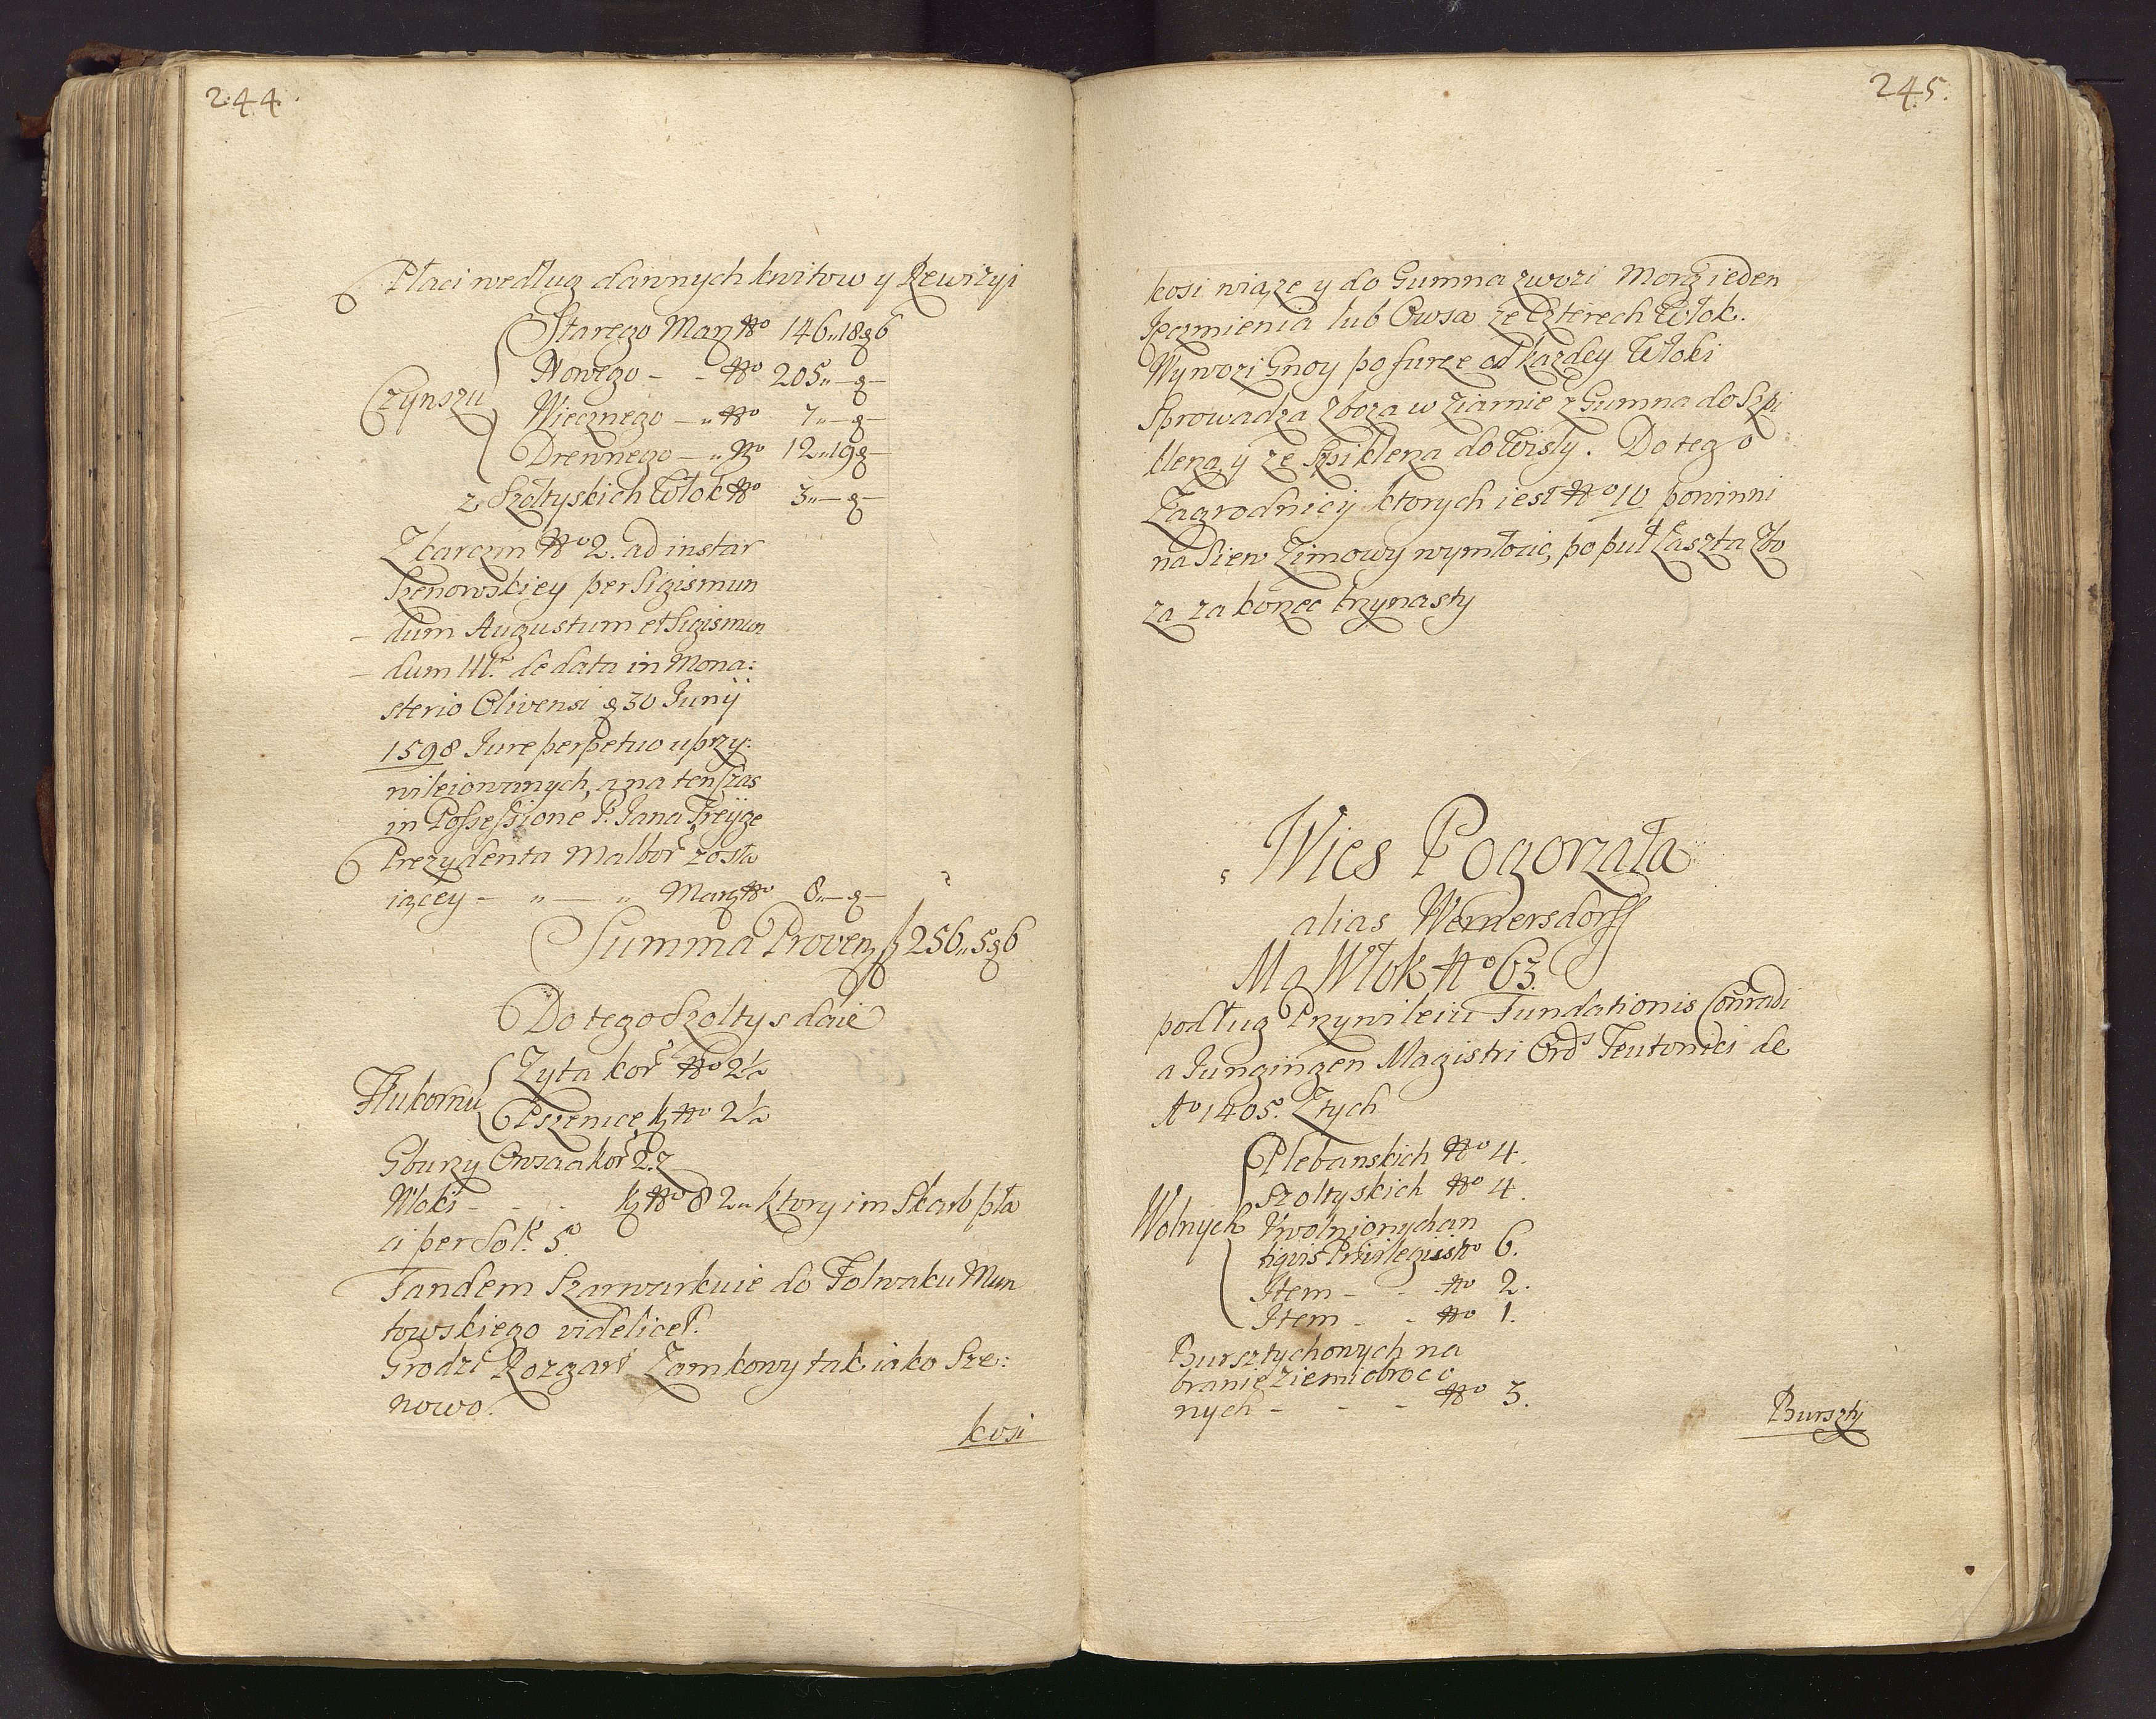 244.
Płaci według dawnych kwitow y Rewizyi
Starego Marg No 146„18g6
Nowego - - No 205„—g—
Czynszu
Wiecznego —„ No 7„—g—
Drewnego —„ No 12„19g—
z Szołtyskich Włok No 3„—g—
Zkarczm No 2. ad instar
Szenowskiey per Sigismun
dum Augustum et Sigismun
dum III. de data in Mona:
sterio Olivensi g 30 Junÿ
1598 Jure perpetuo uprzy:
wileiowanych, a na ten czas
in Possessione P. Jana
Prezydenta Malbor zosta
iącey — „ — „ Marg No 8„—g—
Summa Proven f 256„5g6
Do tego Szoltys daie
Zyta kor No 2½
Płukornu
Pszenice k No 2½
Gburzy Owsa a kor 2. z
Włoki - - - k No 82„ ktory im Skarb pła
ci per Sol. 5.
Tandem Szarwarkuie do Folwaku Mun
towskiego videlicet.
Grodzi Rozgart Zamkowy tak iako Sze:
nowo.
kosi
245.
kosi wiąze y do Gumna zwozi Morg ieden
Ięczmienia lub Owsa ze Czterech Włok.
Wywozi Gnoy po furze od kazdey Włoki
Sprowadza Zboza w Ziarnie z Gumna do Szpi
klerza y ze Szpiklerza do Wisły. Do tego
Zagrodnicy ktorych iest No 10 powinni
na Siew Zimowy wymłocic, po puł Łaszta Zbo
za za korzec trzynasty
Wies Pogorzała
alias Wernersdorff
Ma Włok No 63.
podług Przywileiu Fundationis Conradi
a Jungingen Magistri Ord Teutonici de
Ao 1405. Ztych
Plebanskich No 4.
Szoltyskich No 4.
Wolnych Uwolnionych an
tiquis Privilegiis No 6.
Item - - No 2.
Item - - No 1.
Bursztychowych na
branie Ziemi obroco
nych - - - No 3.
Burszty